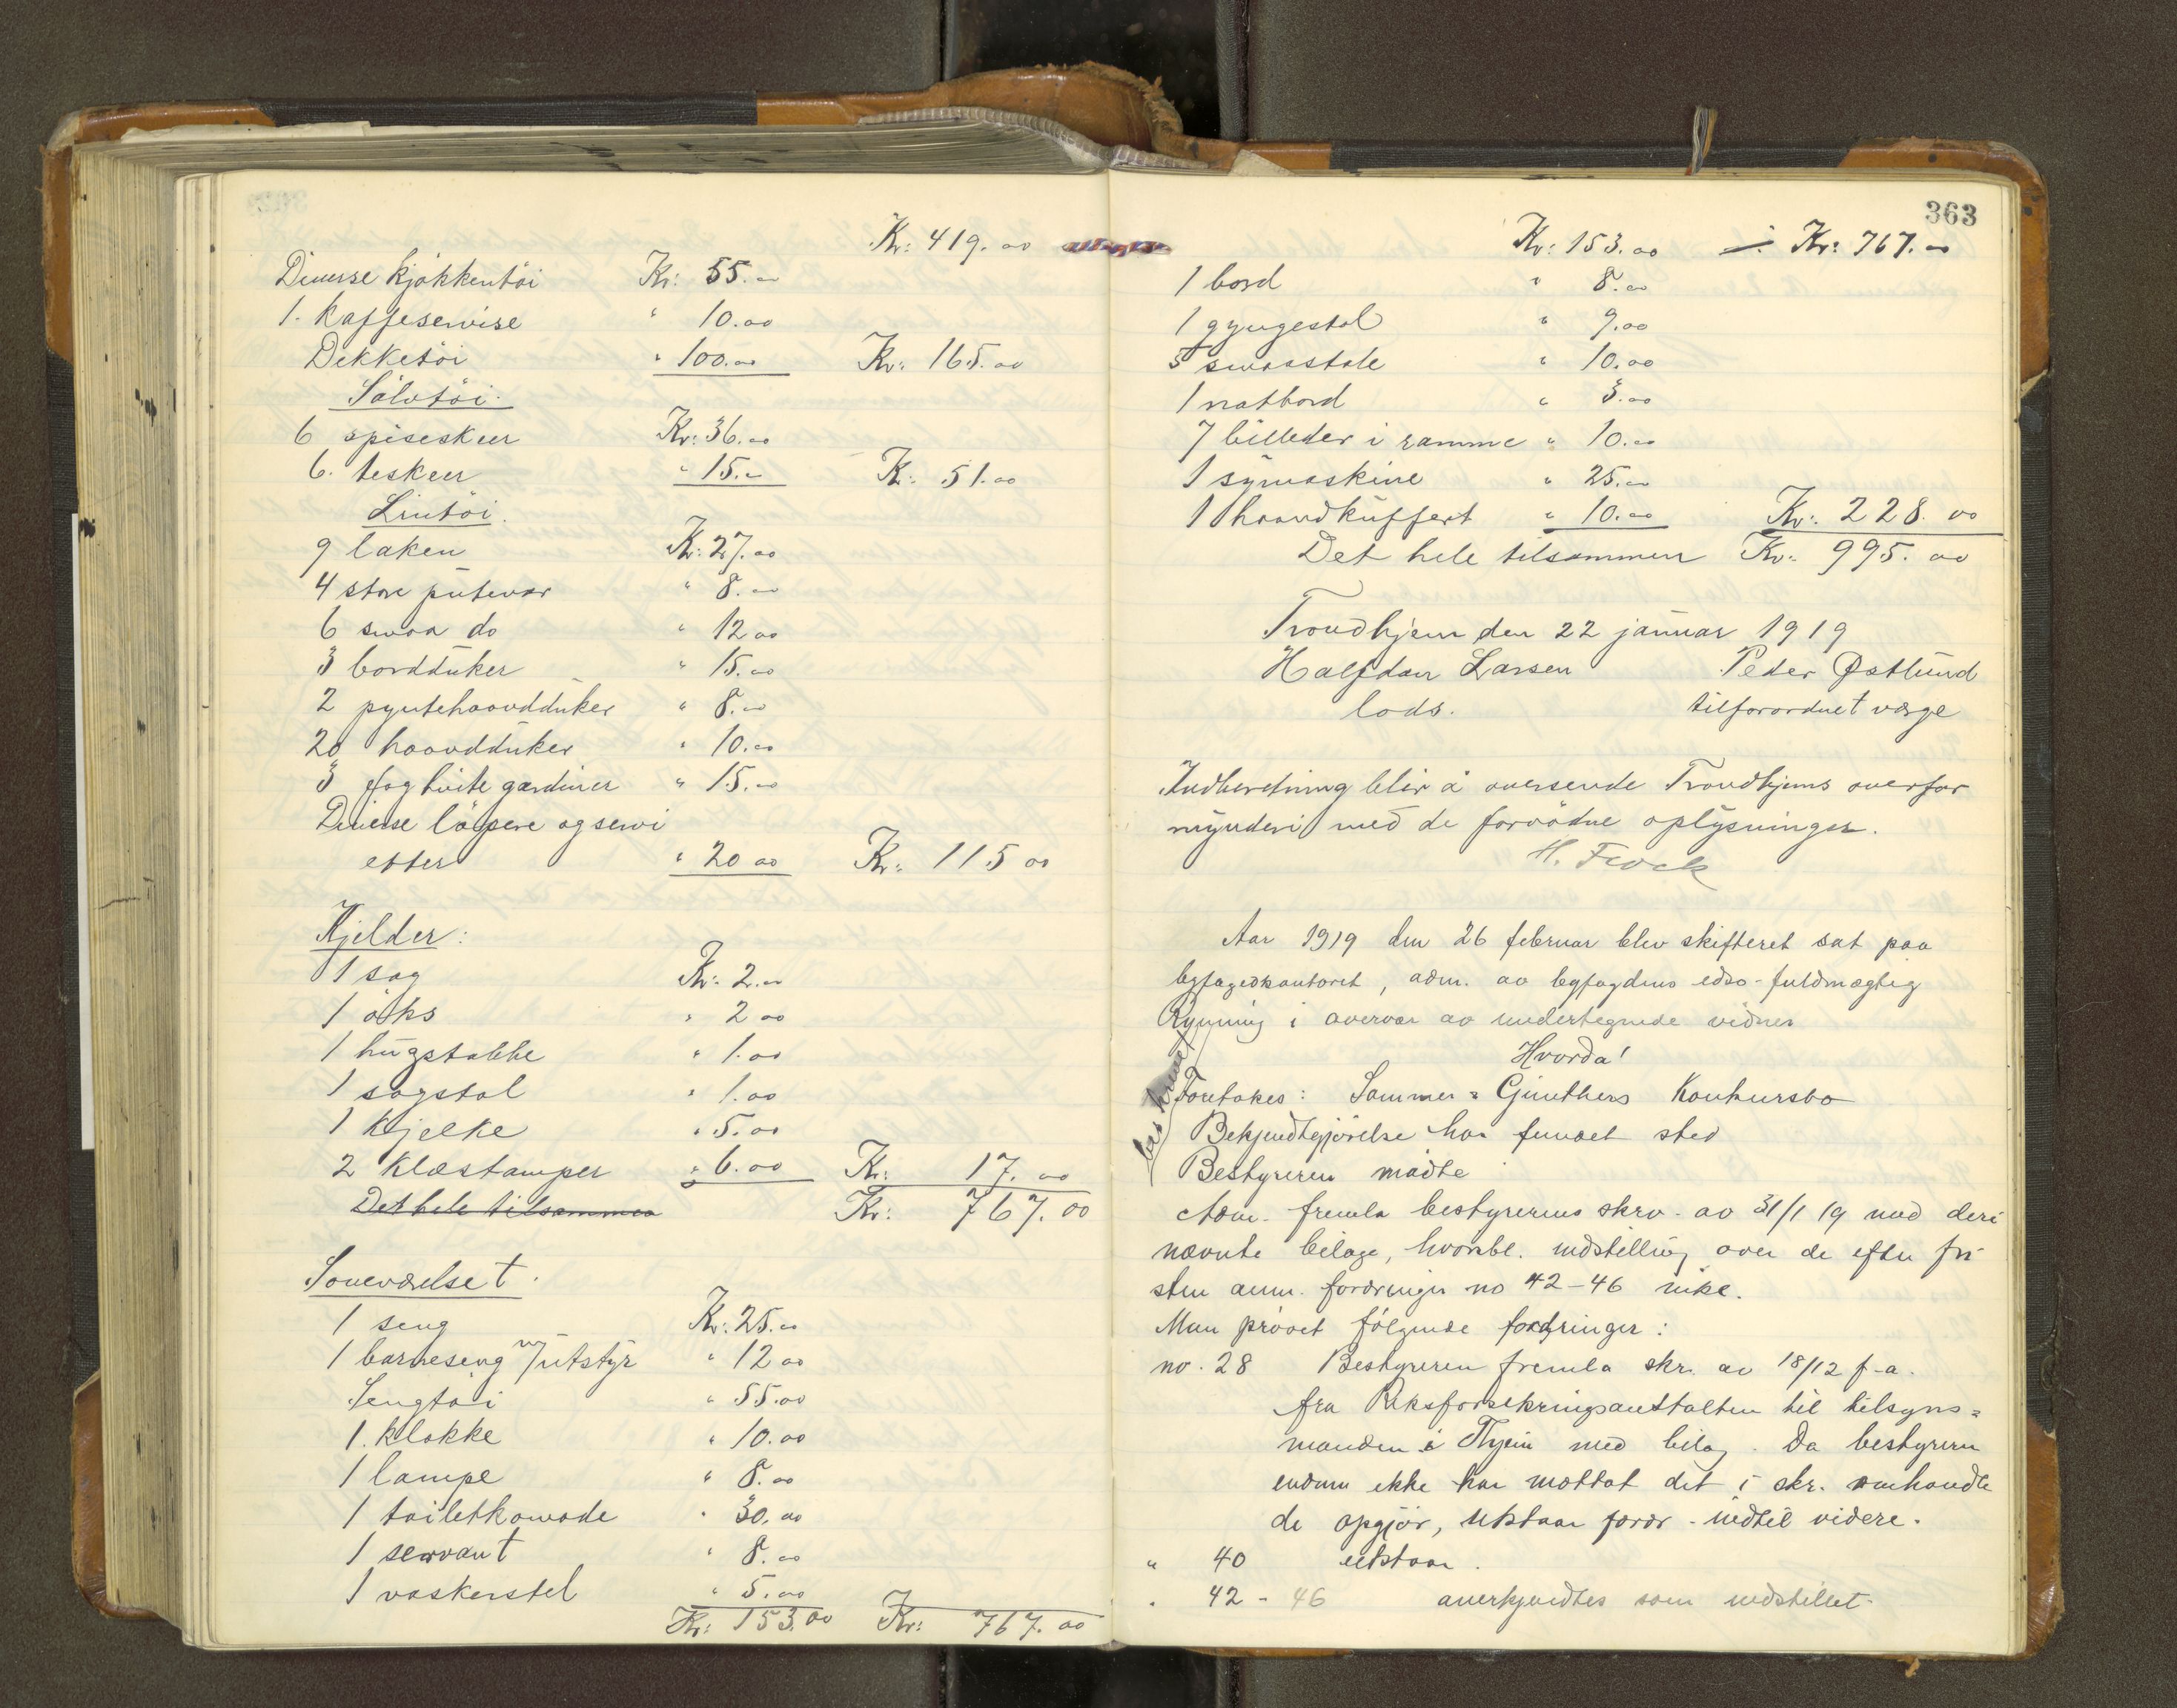 Kr: 419.00
Diverse kjökkentöi Kr: 55.00
1. Kaffeservise " 10.00
Dekketöi " 100.00 Kr: 165.00
Sölvtöi.
6 spiseskeer Kr: 36.00
6. teskeer " 15.00 Kr: 51.00
Lintöi.
9 laken Kr: 27.00
4 store putevar " 8.00
6 smaa do " 12 00
3 bordduker " 15.00
2 pyntehaandduker " 8.00
20 haandduker " 10.00
3 fag hvite gardiner " 15.00
Diverse löpere og servi
etter " 20 00 Kr: 115 00
Kjelder:
1 sag Kr: 2.00
1 öks " 2 00
1 hugstabbe " 1.00
1 sagstol " 1.00
1 Kjelke " 5.00
2 Klæstamper " 6.00 Kr: 17.00
Det hele tilsammen Kr: 767.00
Soveværelset.
1 seng Kr: 25.00
1 barneseng m/utstyr " 12 00
Sengtöi " 55.00
1. klokke " 10.00
1 lampe " 8.00
1 toiletkomode " 30.00
1 servant " 8.00
1 vaskerstel " 5.00
Kr: 153.00 Kr: 767.00
363
Kr: 153.00 Kr: 767.00
1 bord " 8.00
1 gyngestol " 9.00
5 smaastole " 10.00
1 natbord " 3.00
7 billeder i ramme " 10.00
1 symaskine " 25.00
1 haandkuffert " 10.00 Kr: 228.00
Det hele tilsammen Kr: 995.00
Trondhjem den 22 januar 1919
Halfdan Larsen Peder Østlund
lods. tilforordnet værge
Indberetning blir å oversende Trondhjems overfor
mynderi med de fornödne oplysninger.
H. Frock
Aar 1919 den 26 februar blev skifteret sat paa
byfogedkontoret, adm. av byfogdens edsv-fuldmægtig
Rynning i overvær av undertegnede vidner
Hvorda!
Foretokes: Sommer = Günthers Konkursbo
Bekjendtgjörelse har fundet sted
Bestyreren mödte
Adm. fremla bestyrerens skrv. av 31/1 19 med deri
nævnte bilage, hvorbl. indstilling over de efter fri
sten anm. fordringer no 42-46 inkl.
Man prövet fölgende fordringer:
no. 28 Bestyreren fremla skr. av 18/12 f.a.
fra Riksforsikringsanstalten til tilsyns=
manden i Thjem med bilag. Da bestyreren
endnu ikke har mottat det i skr. omhandle
de opgjör, utstaar fordr. indtil videre.
" 40 utstaar.
" 42 - 46 anerkjendtes som indstillet.